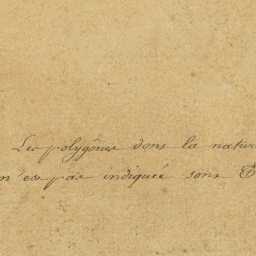 Les polygônes dons la natur
n'est pas indiquée sons